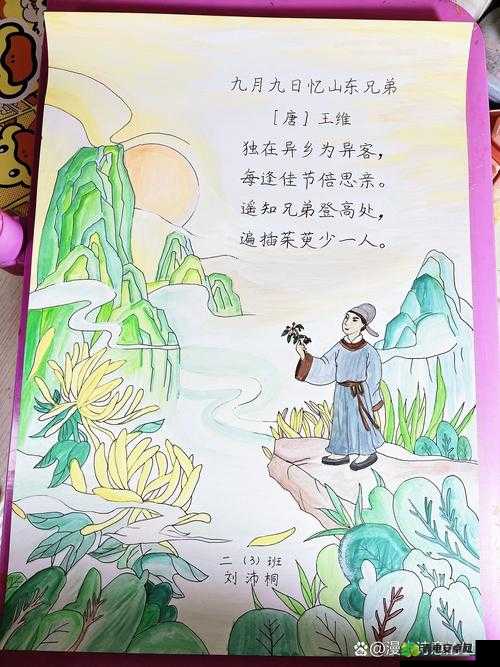 九月九日忆山东兄弟
[唐]王维
独在异乡为异客，
每逢佳节倍思亲。
遥知兄弟登高处，
遍插茱萸少一人。
二（3）班
刘沛桐